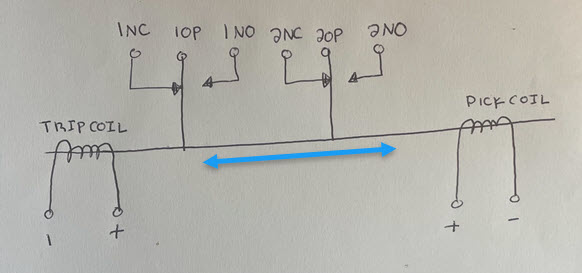 1NC 1OP 1NO 2NC 2OP 2NO
TRIP COIL
PICK COIL
- +
+ -